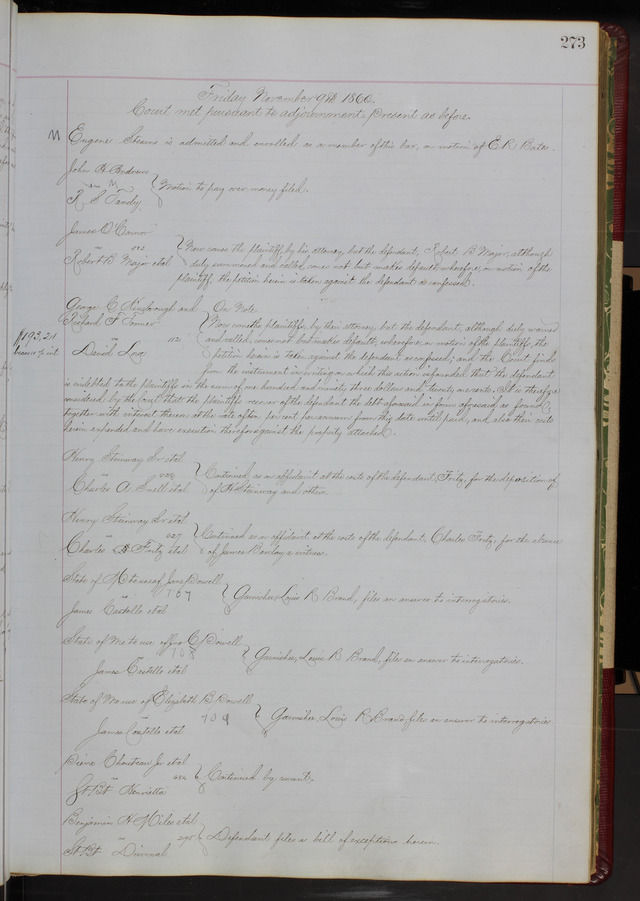 273
Friday November 9th 1866.
Court met pursuant to adjournment, present as before.
M Eugene Stearns is admitted and enrolled as a member of this bar, on motion of E R Bates.
John H Andrews
vs M Motion to pay over money filed.
R S Tandy
James O'Connor
vs Now comes the plaintiff by his attorney, but the defendant, Robert B Major, although
Robert B Major et al duly summoned and called, comes not but makes default wherefore, on motion of the
plaintiff, the petition herein is taken against the defendant as confessed.
George C Kimbrough and On Note
Richard F Tanner Now come the plaintiffs, by their attorney, but the defendant, although duly warned
$193,21 vs 112 and called, comes not but makes default; wherefore, on motion of the plaintiffs, the
David Long petition herein is taken against the defendant as confessed; and the Court finds
from the instrument in writing on which this action is founded that the defendant
is indebted to the plaintiffs in the sum of one hundred and ninety three dollars and twenty one cents. It is therefore
considered by the court that the plaintiffs recover of the defendant the debt aforesaid in form aforesaid so found,
together with interest thereon at the rate of ten per cent per annum from this date until paid, and also their costs
herein expended and have execution therefor against the property attached.
Henry Steinway Sr et al
vs Continued, as on affidavit at the costs of the defendant, Fritz, for the deposition of
Charles A. Snell et al of H Steinway and others
Henry Steinway Sr et al
vs 627 Continued as on affidavit at the costs of the defendant, Charles Fritz, for the absence
Charles H Fritz et al of James Barlay a witness.
State of Mo to use of Jane Dowell
vs 707 Garnishee, Louis R Brand, files an answer to interrogatories.
James Castello et al
State of Mo to use of C Dowell
708 Garnishee, Louis R Brand, files an answer to interrogatories.
James Castello et al
State of Mo use of Elizabeth B Dowell
709 Garnishee Louis R Brand files an answer to interrogatories
James Castello et al
Pierre Chouteau Jr et al
vs Continued by consent
St. Bt Henrietta
Benjamin H Miles et al
vs 295 Defendant files a bill of exceptions herein.
St. Bt